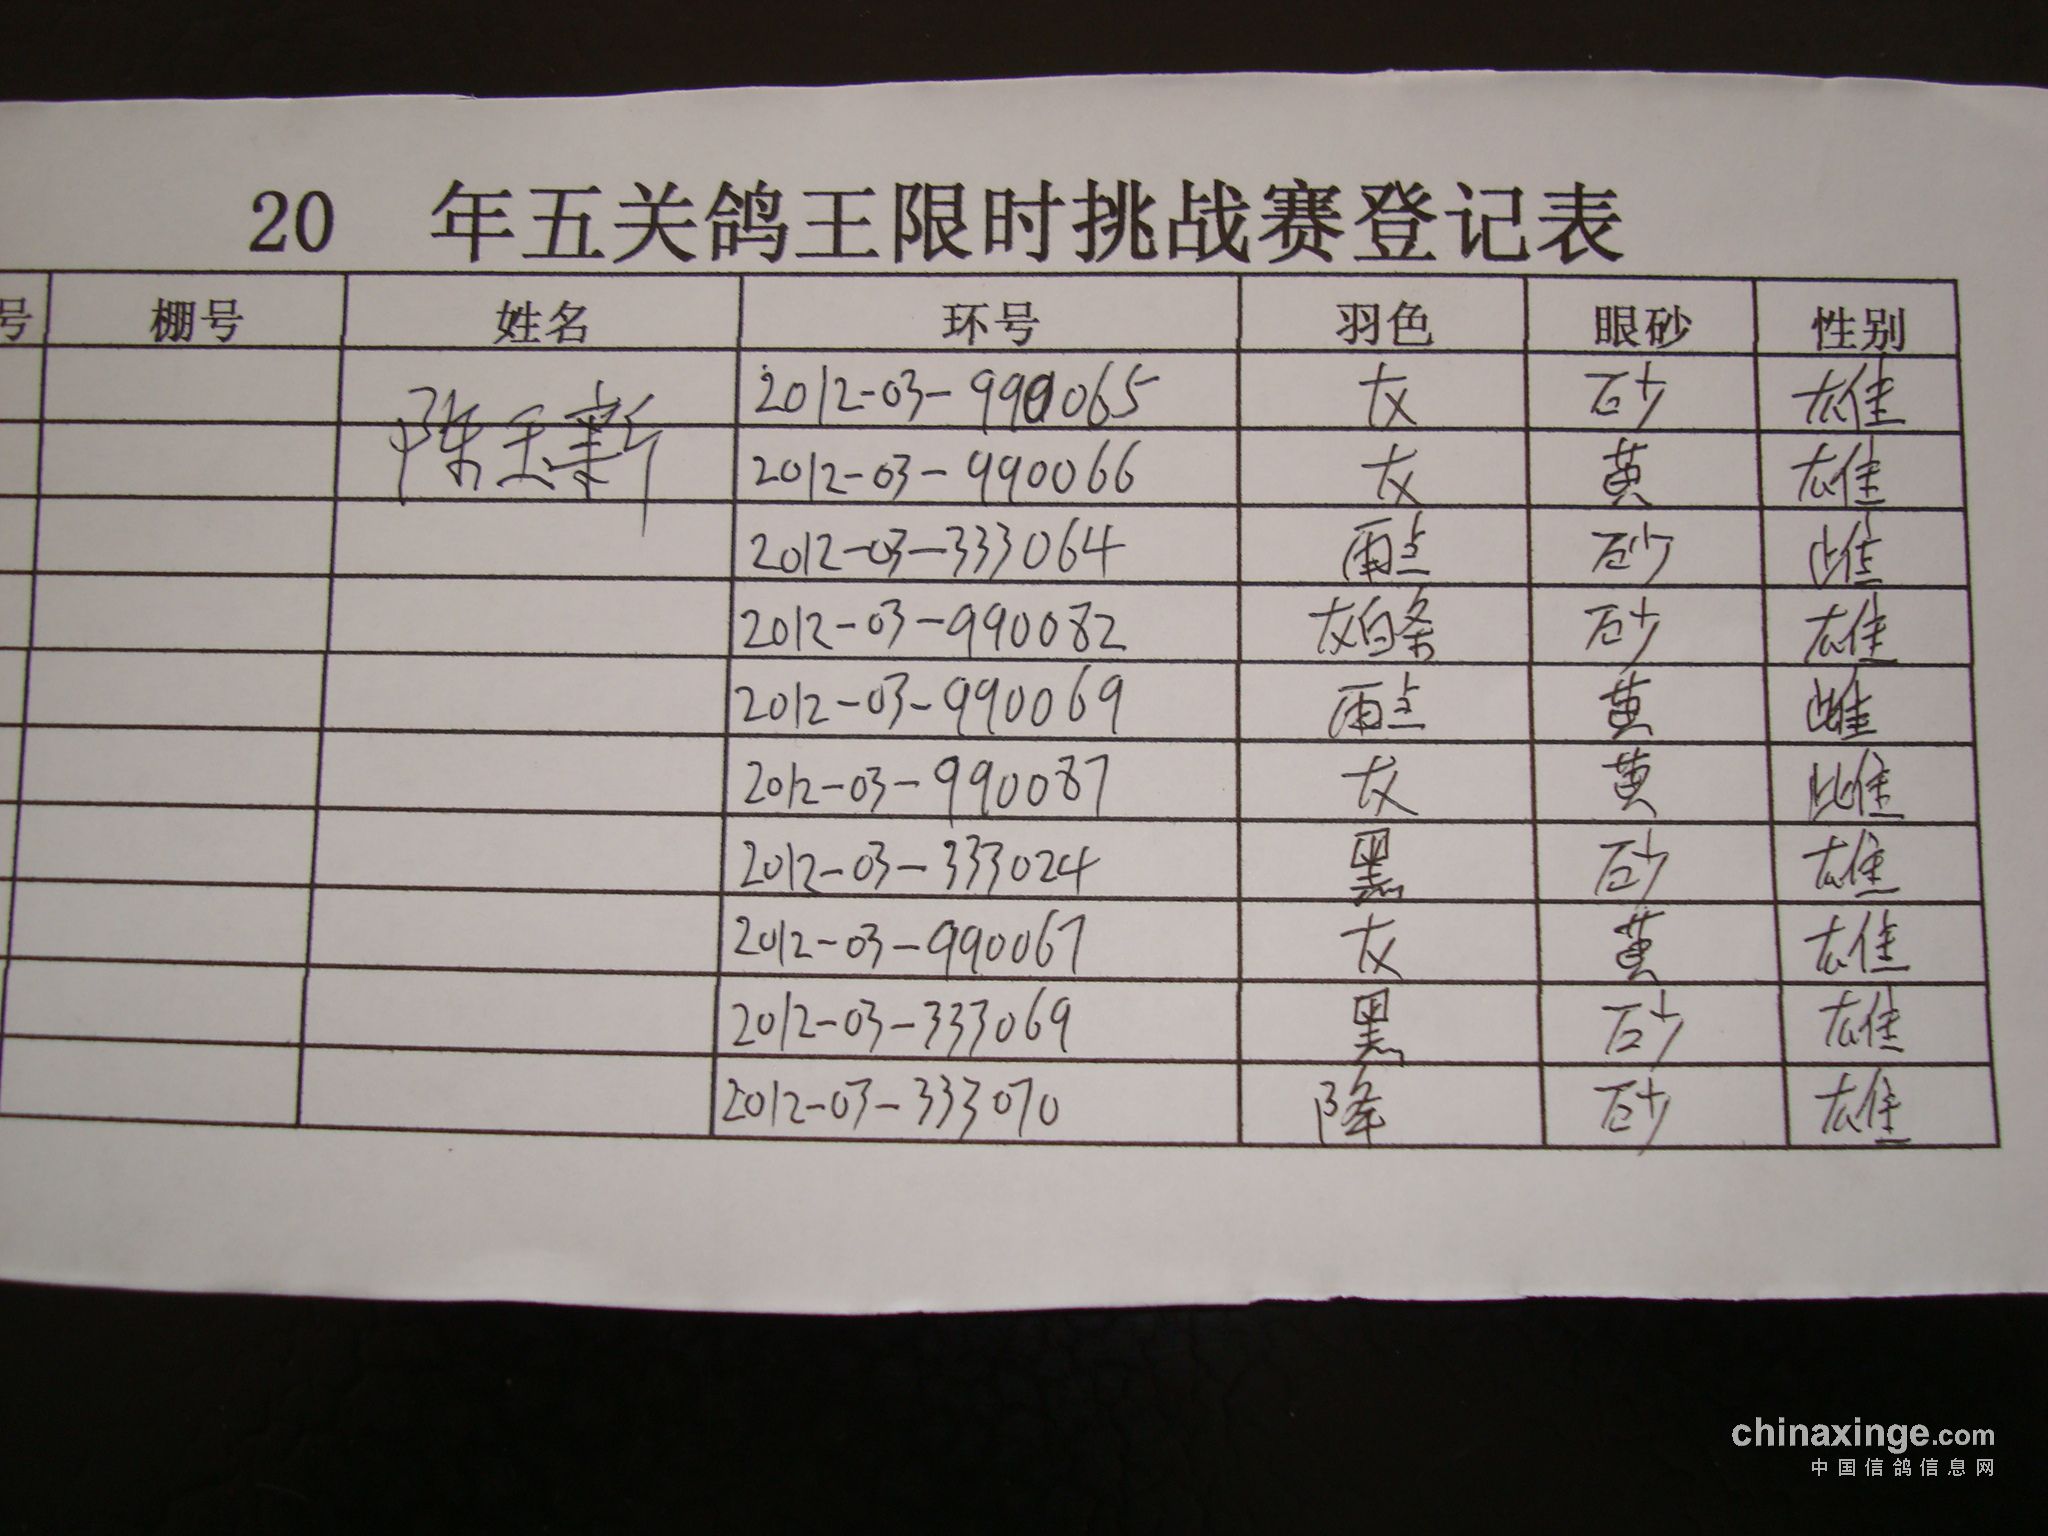 20 年五关鸽王限时挑战赛登记表
号 棚号 姓名 环号 羽色 眼砂 性别
陈玉新 2012-03-990065 灰 砂 雄
2012-03-990066 灰 黄 雄
2012-03-333064 雨点 砂 雌
2012-03-990082 灰白条 砂 雄
2012-03-990069 雨点 黄 雌
2012-03-990087 灰 黄 雌
2012-03-333024 黑 砂 雄
2012-03-990067 灰 黄 雄
2012-03-333069 黑 砂 雄
2012-03-333070 降 砂 雄
chinaxinge.com
中国信鸽信息网